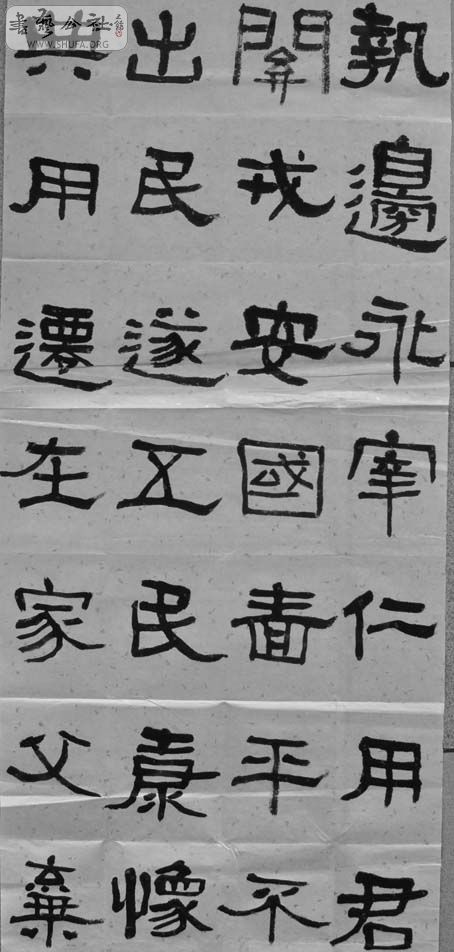 書艺公社
WWW.SHUFA.ORG
執邊永宰仁用君
開戎安國平不
出民遂五民
用遷在家父棄